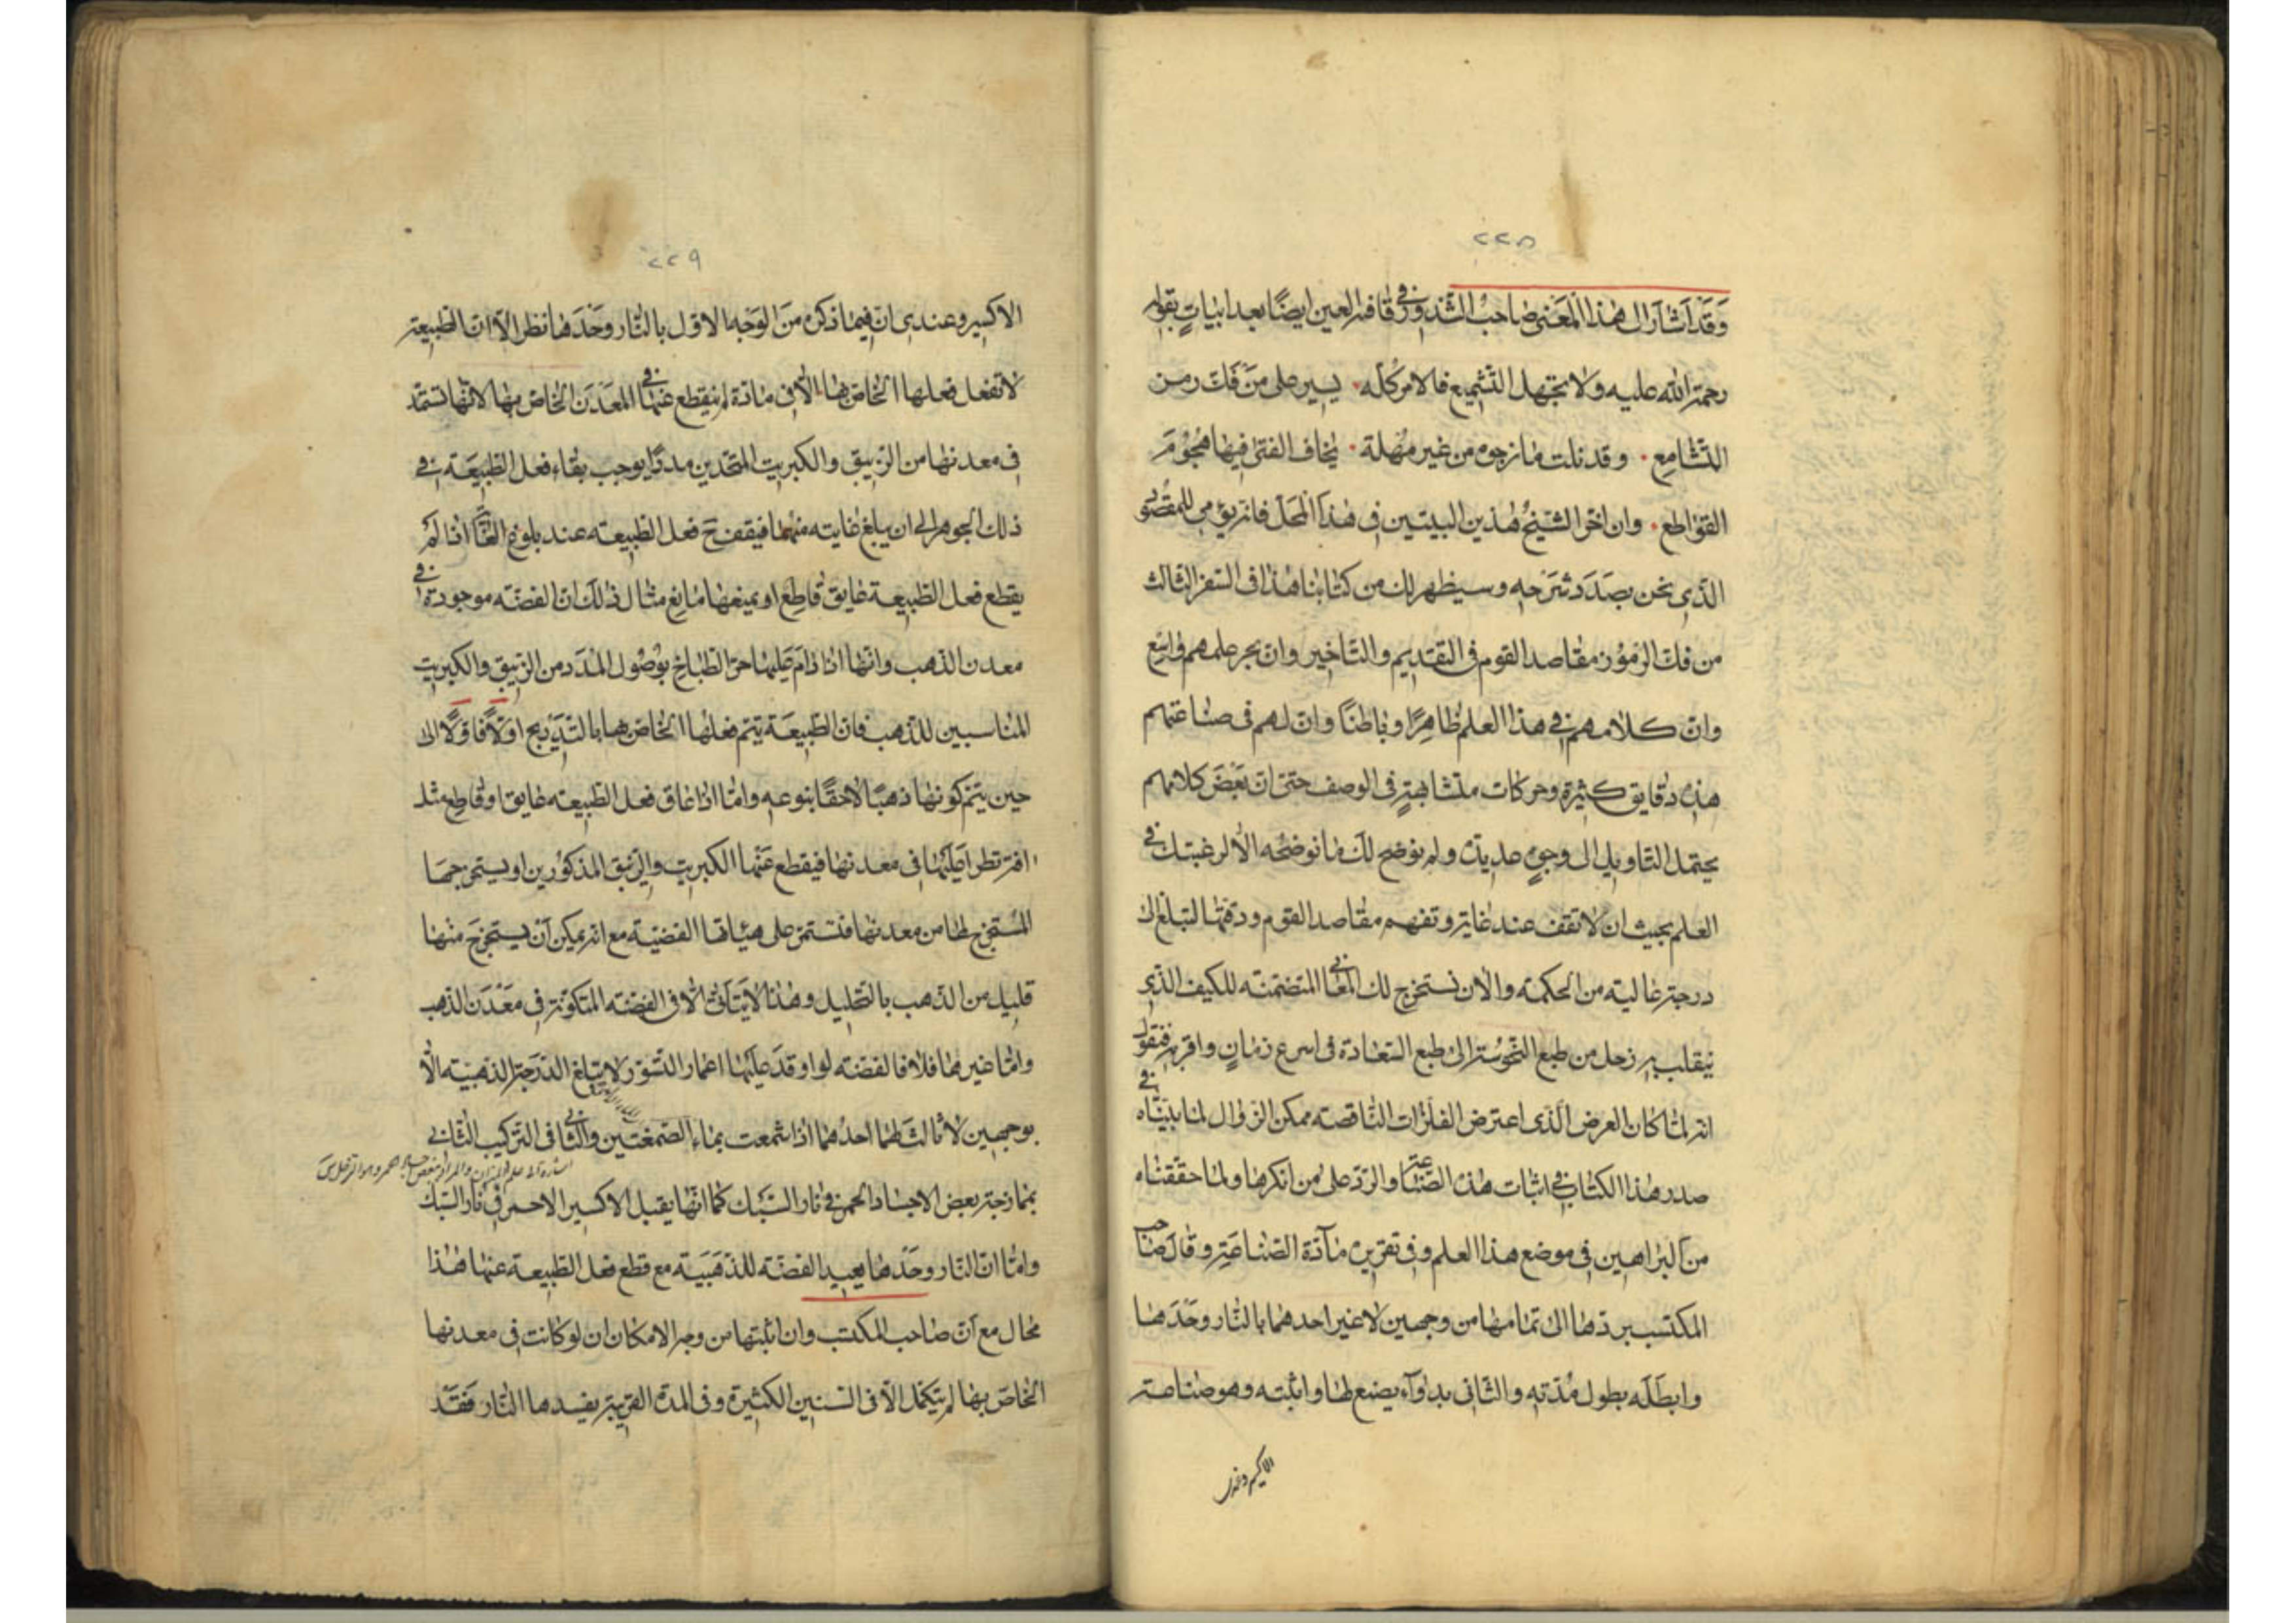 ٢٢٨
وَقَد اَشَارَ الى هٰذا المَعْنى صَاحبُ الشذور في قافية العين ايضًا بعد ابياتٍ بقوله
رحمة الله عليه ولا تجهل التشميع فالامر كله · يسير على من فك رمز
التشامع · وقد نلت ما نرجوه من غير مهلة · يخاف الفتى فيها هُجُومَ
القواطع · وان اخر الشيخ هذين البيتين في هذا المحل فانه يؤمى للمقصود
الذي نحن بصَدَد شرَحه وسيظهر لك من كتابنا هٰذا في السفر الثالث
من فك الرموز مقاصد القوم في التقديم والتاخير وان بحر علمهم واسع
وان كلامهم في هذا العلم ظاهِرًا وباطنًا وان لهم في صناعتهم
هذه دقايق كثيرة وحركات متشابهةٍ في الوصف حتى ان بَعْضَ كلامهم
يحتمل التاويل الى وجوهٍ عديدة ولم نوضح لك ما نوضحه الا لرغبتك في
العلم بحيث ان لا تقف عند غاية وتفهم مقاصد القوم ودقتها لتبلغ الى
درجة عالية من الحكمة والان نستخرج لك المعاني المتضمنه للكيف الذي
ينقلب به زحل من طبع النحوسة الى طبع السعادة في اسرع زمانٍ واقربه فنقول
انه لما كان العرض الذي اعترض الفلزات الناقصه ممكن الزوال لما بيّناه في
صدر هٰذا الكتاب في اثبات هذه الصناعة والرد على من انكرها ولما حققناه
من البراهين في موضع هذا العلم وفي تقرير مآدة الصناعة وقال صاحب
المكتسب بردها الى تمامها من وجهين لا غير احدهما بالنار وحدها
وابطَلَه بطول مُدّته والثاني بدوآء يصنع لها واثبته وهو صناعة
الاكسير وعندي
٢٢٩
الاكسير وعندى انّ فيما ذكره منَ الوَجه الاول بالنار وحْدَها نظر الا ان الطبيعة
لا تفعل فعلها الخاص بها الا في مادة لم ينقطع عنها في المعَدَن الخاص بها لانها تستمد
في معدنها من الزيبق والكبريت المتحدين مددًا يوجب بقاء فعل الطبيعَة في
ذلك الجوهر الى ان يبلغ غايته منهما فيقف ح فعل الطبيعه عند بلوغ الغاية اذا لمْ
يقطع فعل الطبيعة عايق قاطع او يمنعها مانع مثال ذلك ان الفضه موجودة في
معدن الذهب وانها اذا دَامَ عَليها حرّ الطباخ بوُصُول المَدَد من الزيبق والكبريت
المناسبين للذهب فان الطبيعَة يتم فعلها الخاص بها بالتدّريج اوّلاً فاوّلاً الى
حين يتم كونها ذهبًا لاحقًا بنوعه واما اذا عاق فعل الطبيعه عايق او قاطع مثل
افة تطرا عليها في معدنها فيقطع عَنْها الكبريت والزيبق المذكورين او يستخرجها
المُستخرج لها من معدنها فتستمر على هيأتها الفضيّة مع انه يمكن أن يستخرج منها
قليل من الذهب بالتحليل وهذا لا يتَأتى الا في الفضه المتكونة في معْدَن الذهب
واما غيرها فلا فالفضه لو اوقدَ عليها اعمار النسور لا تبلغ الدّرَجة الذهبيّه الّا
بوجهين لا ثالث لهما احدهما اذا شمعت بماء الصمغتين والثاني في التركيب الثاني
بممازجة بعض الاجساد الحمر في نار السّبك كما انّها يقبل الاكسير الاحمر في نار السّبك
وامّا ان النار وحْدها يعيد الفضّة للذهَبيّة مع قطع فعل الطبيعة عنها فهٰذا
محال مع اَنّ صاحب المكتسب وان اثبتها من وجه الامكان ان لو كانت في معدنها
الخاصّ بها لم يتكمّل الا في السنين الكثيرة وفي المدة القريبة يفسدها النار فقدْ